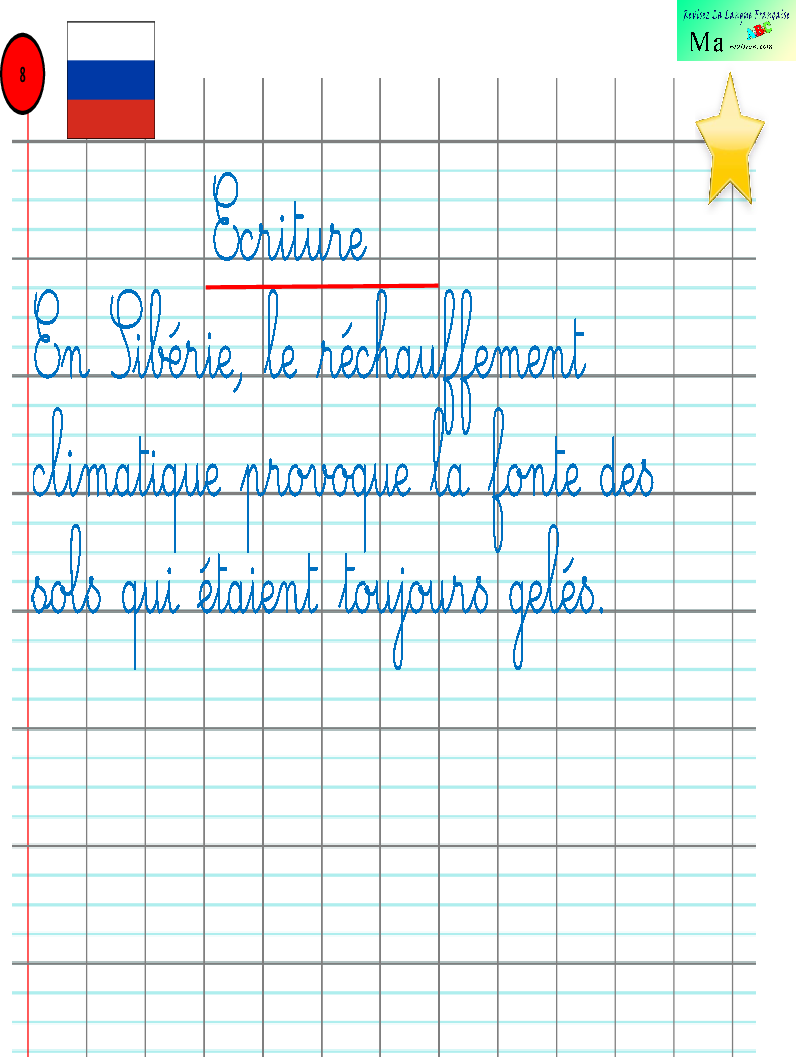 Revisez La Langue Française
Ma
revision.com
8
Ecriture
En Sibérie, le réchauffement
climatique provoque la fonte des
sols qui étaient toujours gelés.